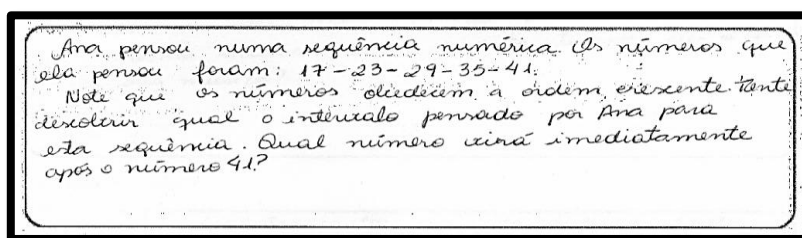 Ana pensou numa sequência numérica. Os números que
ela pensou foram: 17-23-29-35-41.
Note que os números obedecem a ordem crescente. Tente
descobrir qual o intervalo pensado por Ana para
esta sequência. Qual número virá imediatamente
após o número 41?